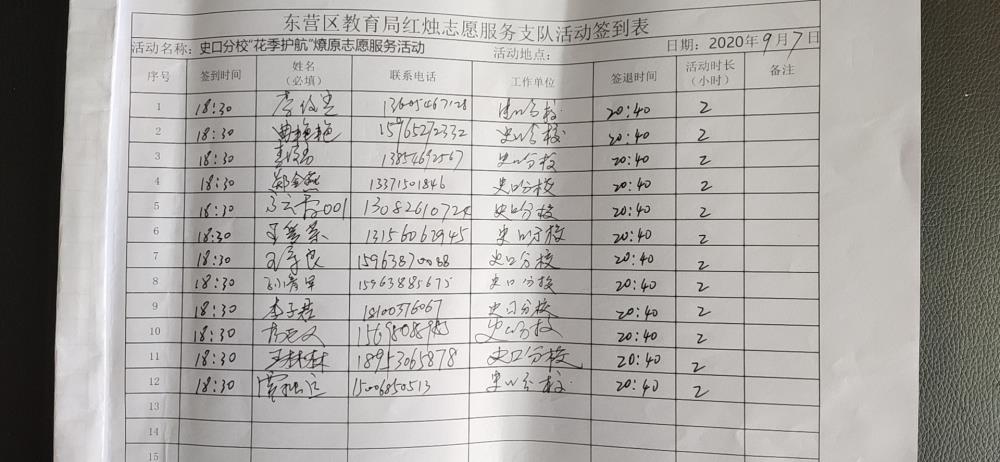 东营区教育局红烛志愿服务支队活动签到表
活动名称：史口分校“花季护航”燎原志愿服务活动 活动地点： 日期：2020年9月7日
序号 签到时间 姓名（必填） 联系电话 工作单位 签退时间 活动时长（小时） 备注
1 18:30 13605467128 史口分校 20:40 2
2 18:30 曲艳艳 15965272332 史口分校 20:40 2
3 18:30 13854692567 史口分校 20:40 2
4 18:30 郑金燕 13371501846 史口分校 20:40 2
5 18:30 史口分校 20:40 2
6 18:30 13156062945 史口分校 20:40 2
7 18:30 史口分校 20:40 2
8 18:30 史口分校 20:40 2
9 18:30 李子君 18100376067 史口分校 20:40 2
10 18:30 史口分校 20:40 2
11 18:30 王林林 18953065878 史口分校 20:40 2
12 18:30 15006850513 史口分校 20:40 2
13
14
15